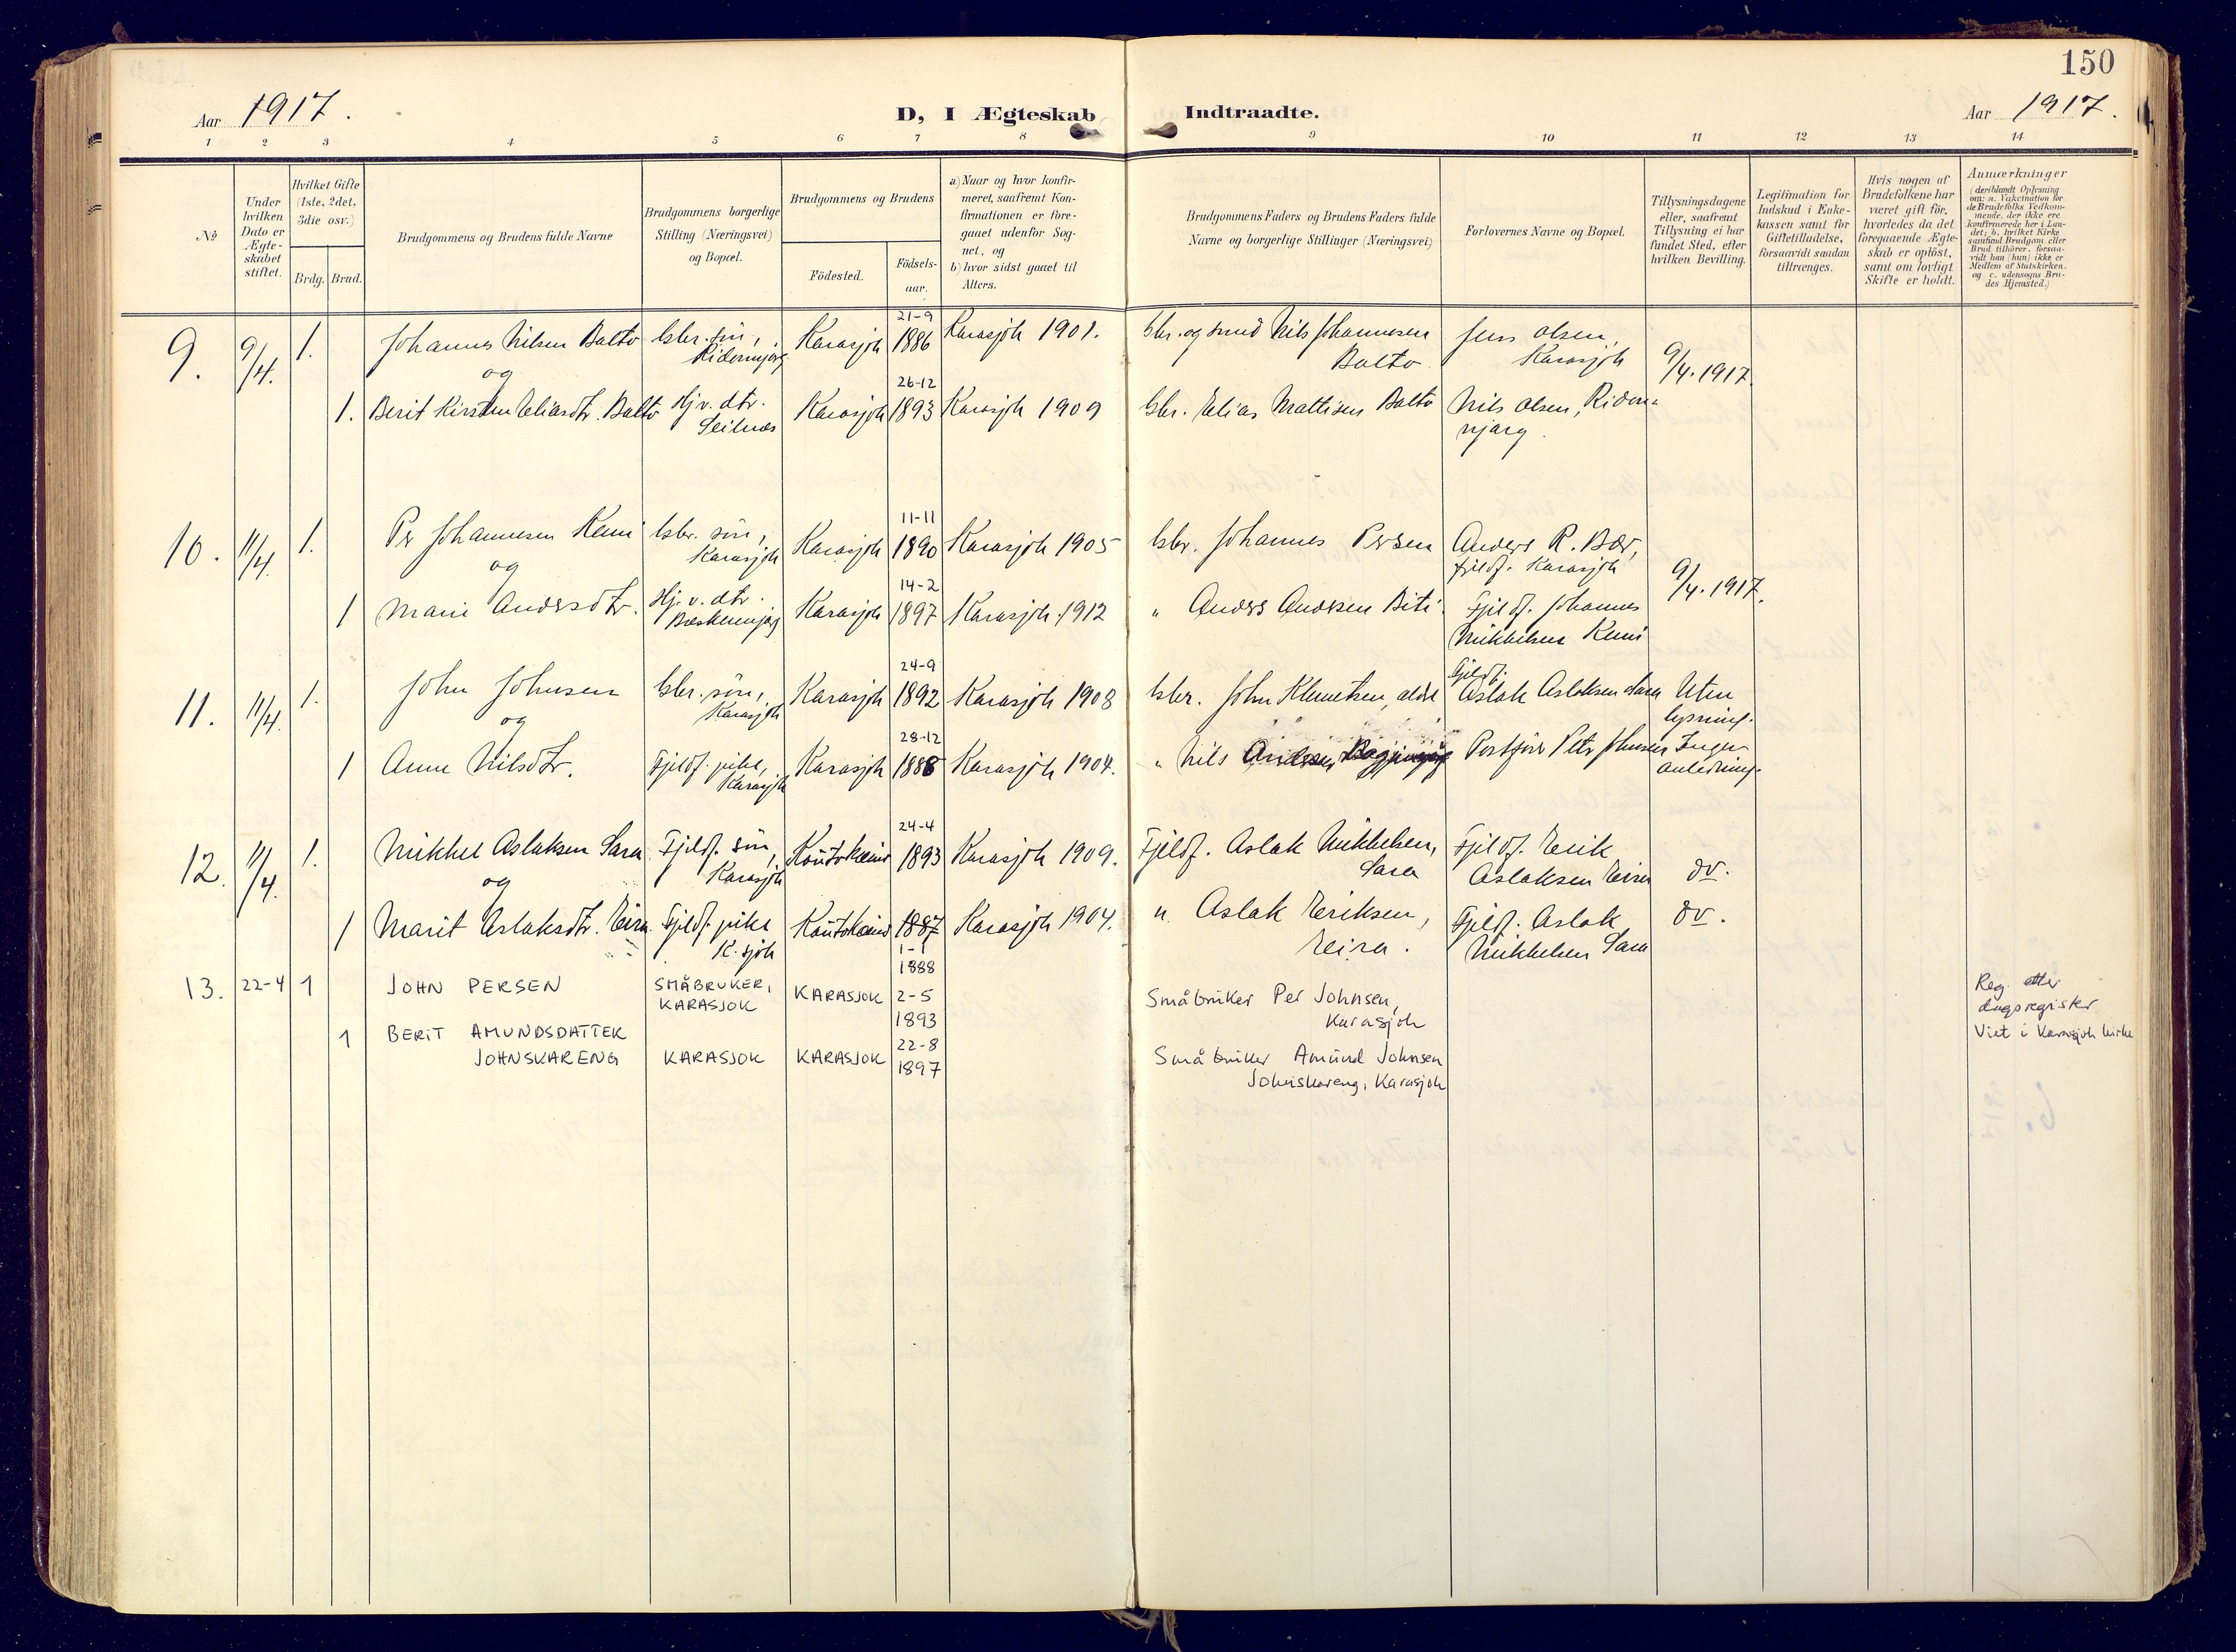 150
Aar 1917.
D, I Ægteskab Indtraadte.
Aar 1917.
1 2 3 4 5 6 7 8 9 10 11 12 13 14
№
Under hvilken Dato er Ægteskabet stiftet.
Hvilket Gifte (1ste, 2det, 3die osv.)
Brdg. Brud.
Brudgommens og Brudens fulde Navne
Brudgommens borgerlige Stilling (Næringsvei) og Bopæl.
Brudgommens og Brudens
Födested.
Födsels-aar.
a) Naar og hvor konfirmeret, saafremt Konfirmationen er foregaaet udenfor Sognet, og
b) hvor sidst gaaet til Alters.
Brudgommens Faders og Brudens Faders fulde Navne og borgerlige Stillinger (Næringsvei)
Forlovernes Navne og Bopæl.
Tillysningsdagene eller, saafremt Tillysning ei har fundet Sted, efter hvilken Bevilling.
Legitimation for Indskud i Enkekassen samt for Giftetilladelse, forsaavidt saadan tiltrænges.
Hvis nogen af Brudefolkene har været gift för, hvorledes da det foregaaende Ægteskab er oplöst, samt om lovligt Skifte er holdt.
Anmærkninger
(deriblandt Oplysning om: a. Vakcination for de Brudefolks Vedkommende, der ikke ere konfirmerede her i Landet; b. hvilket Kirkesamfund Brudgom eller Brud tilhörer, forsaavidt han (hun) ikke er Medlem af Statskirken, og c. udensogns Brudes Hjemsted.)
9. 9/4. 1. Johannes Nilsen Balto Gbr. sön, Ridonnjarg Karasjok 21-9 1886 Karasjok 1901. Gbr. og smed Nils Johannesen Balto Jens Olsen, Karasjok 9/4. 1917.
og
1. Berit Kirsten Eliasdtr. Balto Hj.v. dtr. Seilnæs Karasjok 26-12 1893 Karasjok 1909 Gbr. Elias Mattisen Balto Nils Olsen, Ridonnjarg.
10. 11/4. 1. Per Johannesen Kemi Gbr. sön, Karasjok Karasjok 11-11 1890 Karasjok 1905 Gbr. Johannes Persen Anders R. Bær, fjeldf. Karasjok 9/4. 1917.
og
1 Marie Andersdtr. Hj.v. dtr. Karasjok 14-2 1897 Karasjok 1912 " Anders Andersen Biti. Fjeldf. Johannes Mikkelsen Kemi
11. 11/4. 1. John Johnsen Gbr. sön, Karasjok Karasjok 24-9 1892 Karasjok 1908 Gbr. John Klemetsen, Fjeldf. Aslak Aslaksen Sara Uten lysning.
og
1 Anne Nilsdtr. Fjeldf. pike, Karasjok Karasjok 28-12 1888 Karasjok 1904. " Nils Andersen Postförer Petr Johnsen Ingen anledning.
12. 11/4. 1. Mikkel Aslaksen Sara Fjeldf. sön, Karasjok Koutokeino 24-4 1893 Karasjok 1909. Fjeldf. Aslak Mikkelsen, Sara Fjeldf. Erik Aslaksen Eira do.
og
1 Marit Aslaksdtr. Eira. Fjeldf. pike K.sjok Koutokeino 1887 1-1 1888 Karasjok 1904. " Aslak Eriksen, Eira. Fjeldf. Aslak Mikkelsen Sara do.
13. 22-4 1 JOHN PERSEN SMÅBRUKER, KARASJOK KARASJOK 2-5 1893 Småbruker Per Johnsen, Karasjok Reg. etter dagsregister Viet i Karasjok kirke
1 BERIT AMUNDSDATTER JOHNSKARENG KARASJOK KARASJOK 22-8 1897 Småbruker Amund Johnsen Johnskareng, Karasjok